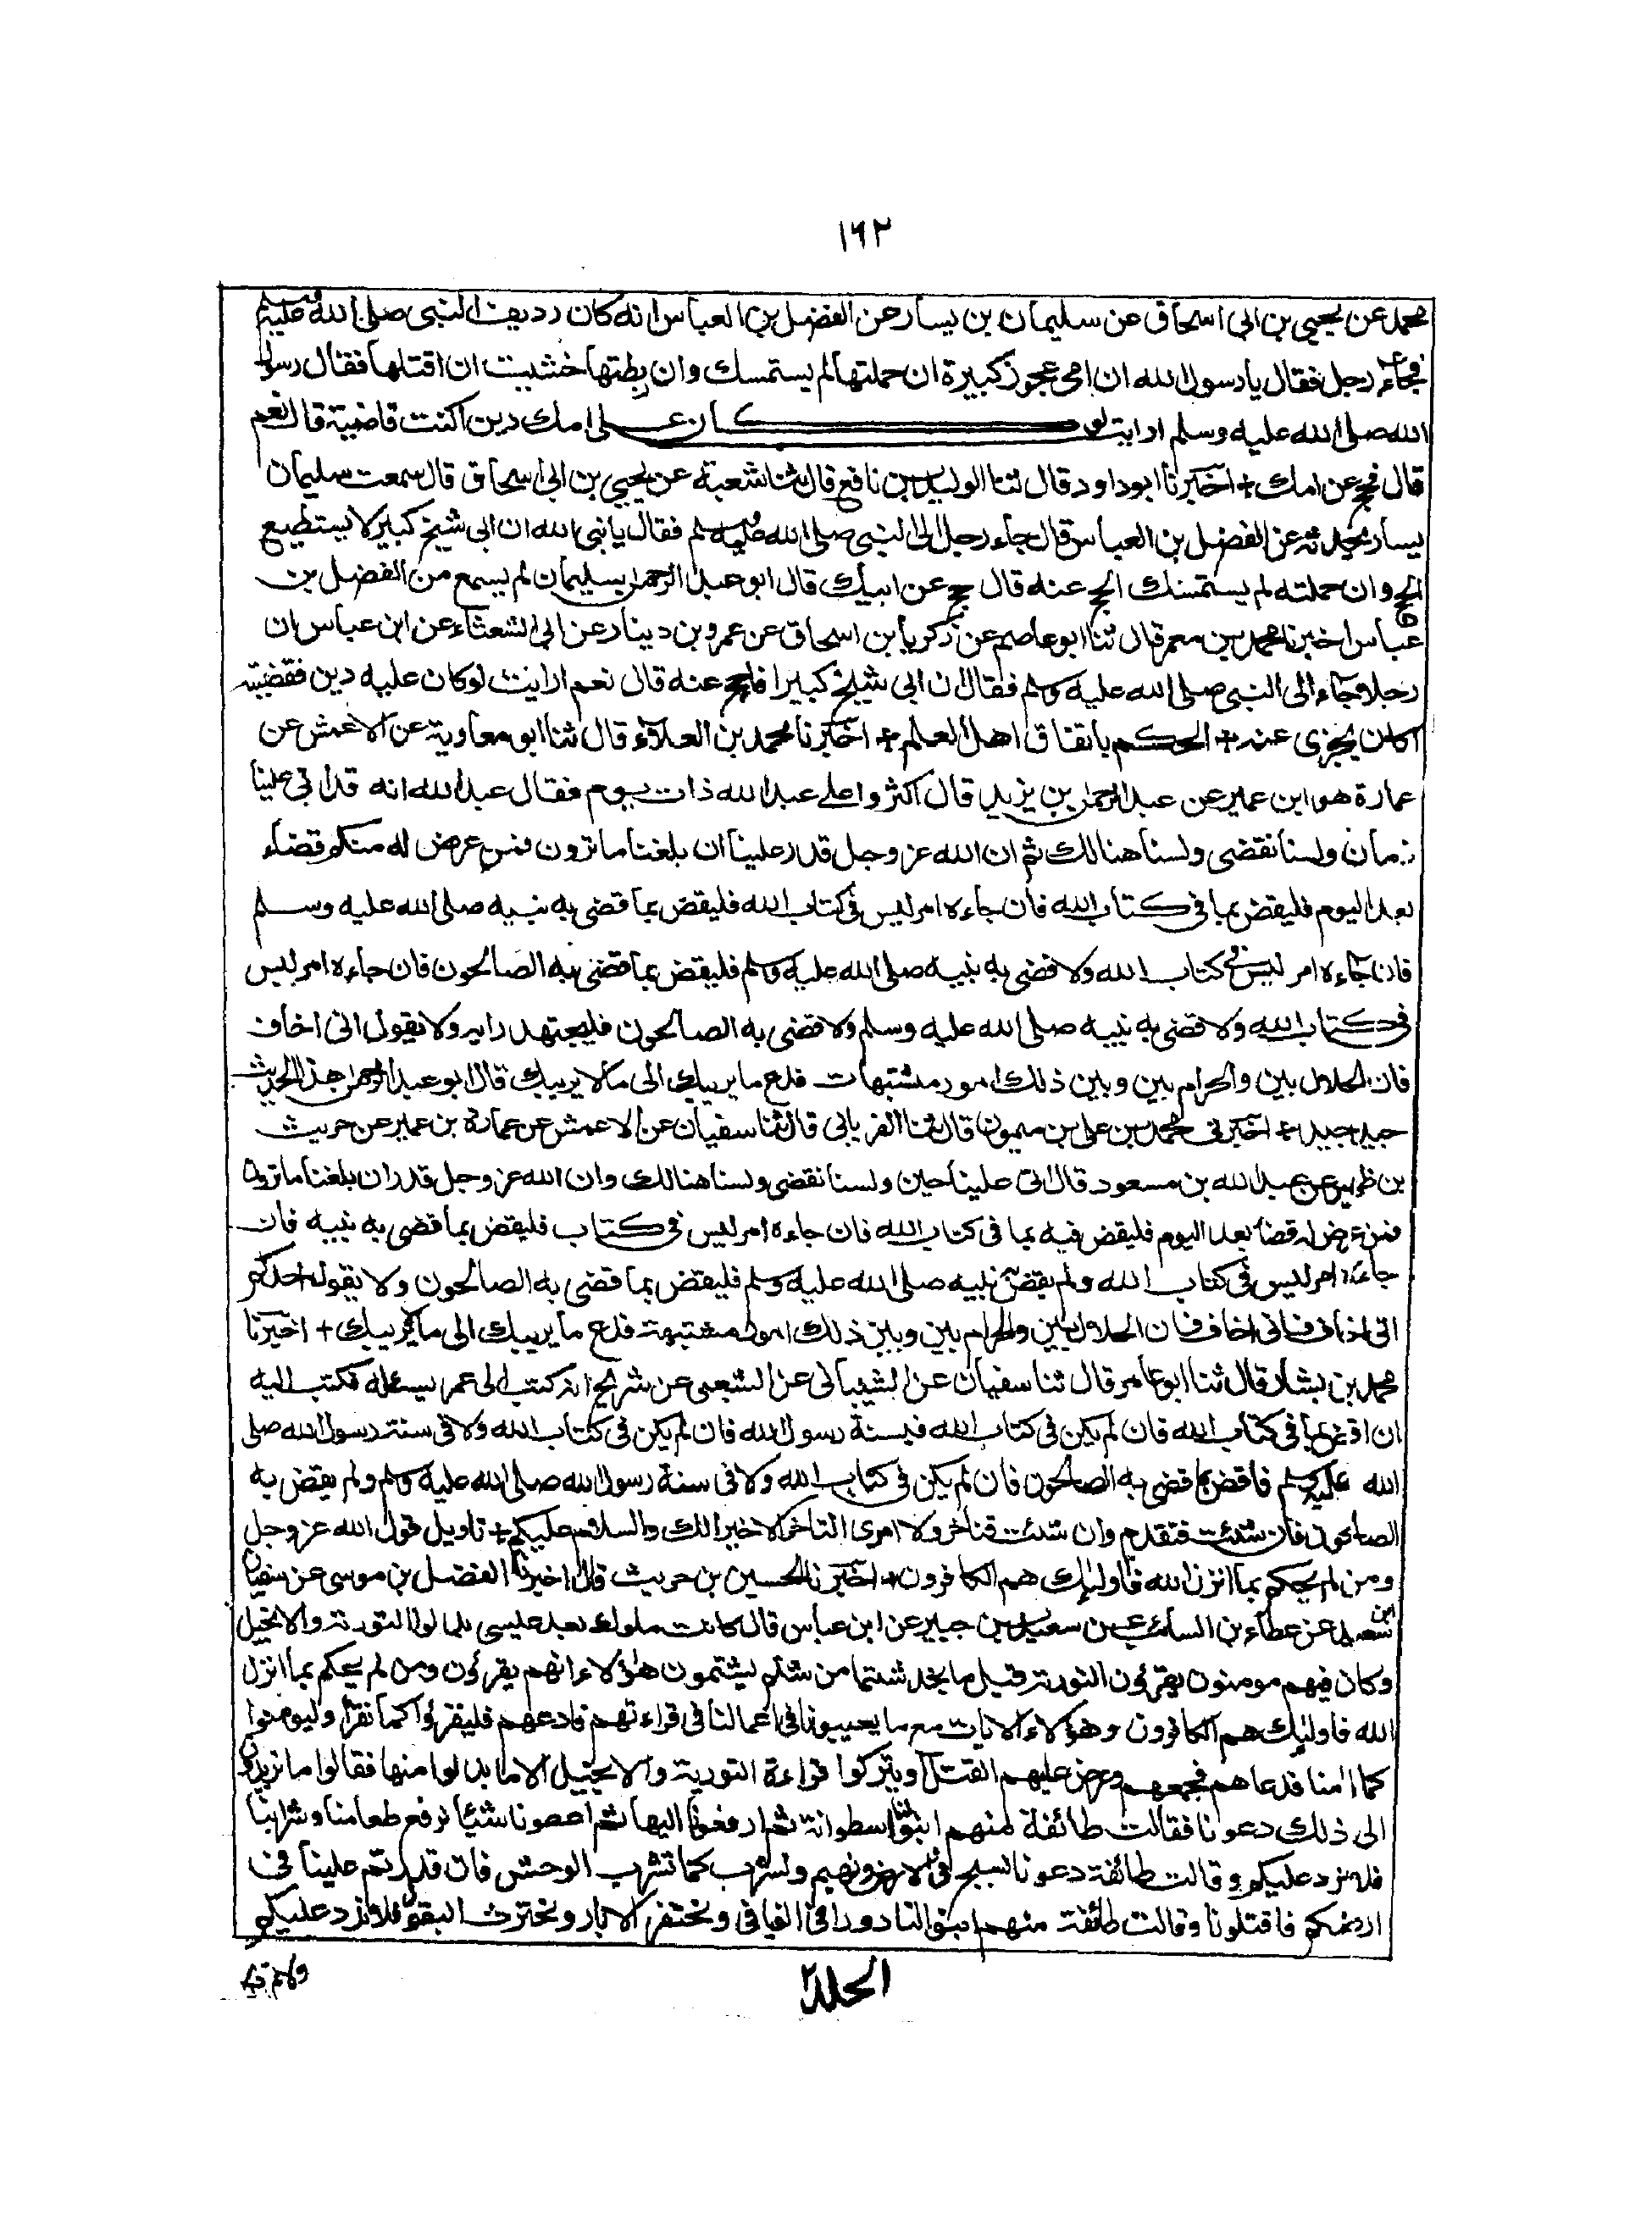 ١٦٢
محمد عن يحيى بن ابى اسحاق عن سليمان بن يسار عن الفضل بن العباس انه كان رديف النبى صلى الله عليه وسلم
فجاءه رجل فقال يا رسول الله ان امى عجوز كبيرة ان حملتها لم يستمسك وان ربطتها خشيت ان اقتلها فقال رسول
الله صلى الله عليه وسلم ارايت لو كان على امك دين اكنت قاضيته قال نعم
قال فحج عن امك + اخبرنا ابوداود قال ثنا الوليد بن نافع قال ثنا شعبة عن يحيى بن ابى اسحاق قال سمعت سليمان
يسار يحدثه عن الفضل بن العباس قال جاء رجل الى النبى صلى الله عليه وسلم فقال يا نبى الله ان ابى شيخ كبير لا يستطيع
الحج وان حملته لم يستمسك الحج عنه قال حج عن ابيك قال ابو عبد الرحمن سليمان لم يسمع من الفضل بن
عباس اخبرنا محمد بن معمر قال ثنا ابو عاصم عن زكريا بن اسحاق عن عمرو بن دينار عن ابى الشعثاء عن ابن عباس ان
رجلا جاء الى النبى صلى الله عليه وسلم فقال ان ابى شيخ كبير افاحج عنه قال نعم ارايت لو كان عليه دين فقضيته
اكان يجزى عنه + الحكم باتفاق اهل العلم + اخبرنا محمد بن العلاء قال ثنا ابو معاوية عن الاعمش عن
عمارة هو ابن عمير عن عبد الرحمن بن يزيد قال اكثروا على عبد الله ذات يوم فقال عبد الله انه قد اتى علينا
زمان ولسنا نقضى ولسنا هنالك ثم ان الله عز وجل قدر علينا ان بلغنا ما ترون فمن عرض له منكم قضاء
بعد اليوم فليقض بما فى كتاب الله فان جاءه امر ليس فى كتاب الله فليقض بما قضى به نبيه صلى الله عليه وسلم
فان جاءه امر ليس فى كتاب الله ولا قضى به نبيه صلى الله عليه وسلم فليقض بما قضى به الصالحون فان جاءه امر ليس
فى كتاب الله ولا قضى به نبيه صلى الله عليه وسلم ولا قضى به الصالحون فليجتهد رايه ولا يقول انى اخاف
فان الحلال بين والحرام بين وبين ذلك امور مشتبهات فدع ما يريبك الى مالا يريبك قال ابو عبد الرحمن هذا الحديث
جيد جيد + اخبرنى محمد بن على بن ميمون قال ثنا الفريابى قال ثنا سفيان عن الاعمش عن عمارة بن عمير عن حريث
بن ظهير عن عبد الله بن مسعود قال اتى علينا حين ولسنا نقضى ولسنا هنالك وان الله عز وجل قدر ان بلغنا ما ترون
فمن عرض له قضاء بعد اليوم فليقض فيه بما فى كتاب الله فان جاءه امر ليس فى كتاب فليقض بما قضى به نبيه فان
جاءه امر ليس فى كتاب الله ولم يقض نبيه صلى الله عليه وسلم فليقض بما قضى به الصالحون ولا يقول احدكم
انى اخاف فانى اخاف فان الحلال بين والحرام بين وبين ذلك امور مشتبهة فدع ما يريبك الى مالا يريبك + اخبرنا
محمد بن بشار قال ثنا ابو عامر قال ثنا سفيان عن الشيبانى عن الشعبى عن شريح انه كتب الى عمر يسئله فكتب اليه
ان اقض بما فى كتاب الله فان لم يكن فى كتاب الله فبسنة رسول الله فان لم يكن فى كتاب الله ولا فى سنة رسول الله صلى
الله عليه وسلم فاقض بما قضى به الصالحون فان لم يكن فى كتاب الله ولا فى سنة رسول الله صلى الله عليه وسلم ولم يقض به
الصالحون فان شئت فتقدم وان شئت فتاخر ولا ارى التاخر الا خيرا لك والسلام عليكم + تاويل قول الله عز وجل
ومن لم يحكم بما انزل الله فاولئك هم الكافرون + اخبرنا الحسين بن حريث قال اخبرنا الفضل بن موسى عن سفيان
بن سعيد عن عطاء بن السائب عن سعيد بن جبير عن ابن عباس قال كانت ملوك بعد عيسى بدلوا التورية والانجيل
وكان فيهم مومنون يقرئون التورية قيل ما نجد شتما من شتم يشتمون هؤلاء انهم يقرئون ومن لم يحكم بما انزل
الله فاولئك هم الكافرون وهؤلاء الايات مع ما يعيبونا فى اعمالنا فى قراءتهم فادعهم فليقرؤا كما نقرأ وليومنوا
كما امنا فدعاهم فجمعهم وعرض عليهم القتل او يتركوا قراءة التورية والانجيل الا ما بدلوا منها فقالوا ما تريدون
الى ذلك دعونا فقالت طائفة منهم ابنوا لنا اسطوانة ثم ارفعونا اليها ثم اعطونا شيئا نرفع طعامنا وشرابنا
فلا نرد عليكم وقالت طائفة دعونا نسيح فى الارض ونهيم ونشرب كما تشرب الوحش فان قدرتم علينا فى
ارضكم فاقتلونا وقالت طائفة منهم ابنوا لنا دورا فى الفيافى ونحتفر الابار ونحترث البقول فلا نرد عليكم
الجلد٢